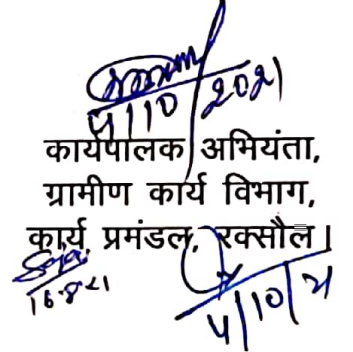 4/10/2021
कार्यपालक अभियंता,
ग्रामीण कार्य विभाग,
कार्य प्रमंडल, रक्सौल।
16.8.21
4/10/21